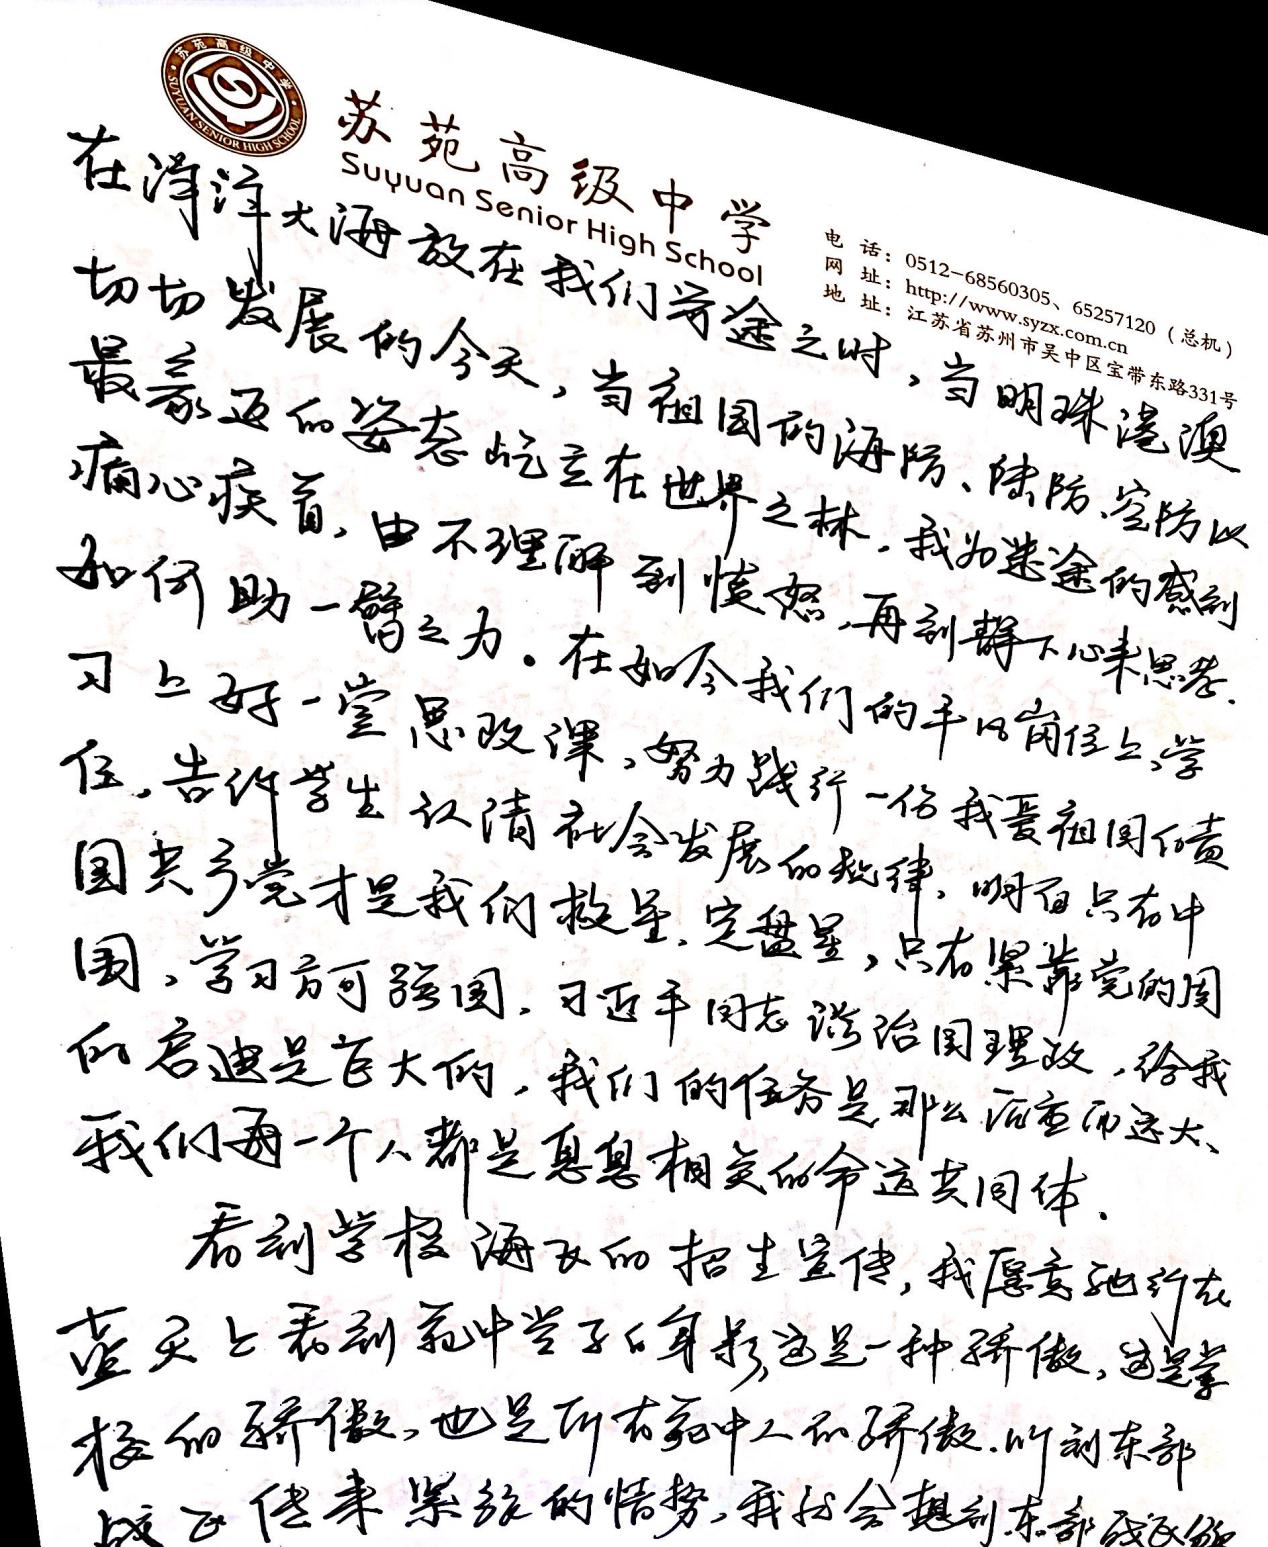 苏苑高级中学
SUYUAN SENIOR HIGH SCHOOL
苏苑高级中学
Suyuan Senior High School
电 话：0512-68560305、65257120（总机）
网 址：http://www.syzx.com.cn
地 址：江苏省苏州市吴中区宝带东路331号
在洋洋大海放在我们前途之时，当明珠港澳
切切发展的今天，当祖国的海防、陆防、空防以
最豪迈的姿态屹立在世界之林，我为迷途的感到
痛心疾首，由不理解到愤怒，再到静下心来思考，
如何助一臂之力。在如今我们的平凡岗位上，学
习上好一堂思政课，努力践行一份我爱祖国的责
任，告诉学生认清社会发展的规律，明白只有中
国共产党才是我们救星、定盘星，只有紧靠党的周
围，学习方可强国，习近平同志谈治国理政，给我
的启迪是巨大的，我们的任务是那么沉重而远大、
我们每一个人都是息息相关的命运共同体.
看到学校海飞的招生宣传，我愿意驰行在
蓝天上看到苑中学子的身影，这是一种骄傲，这是学
校的骄傲，也是所有苑中人的骄傲.听到东部
战区传来紧张的情势，我就会想到东部战区